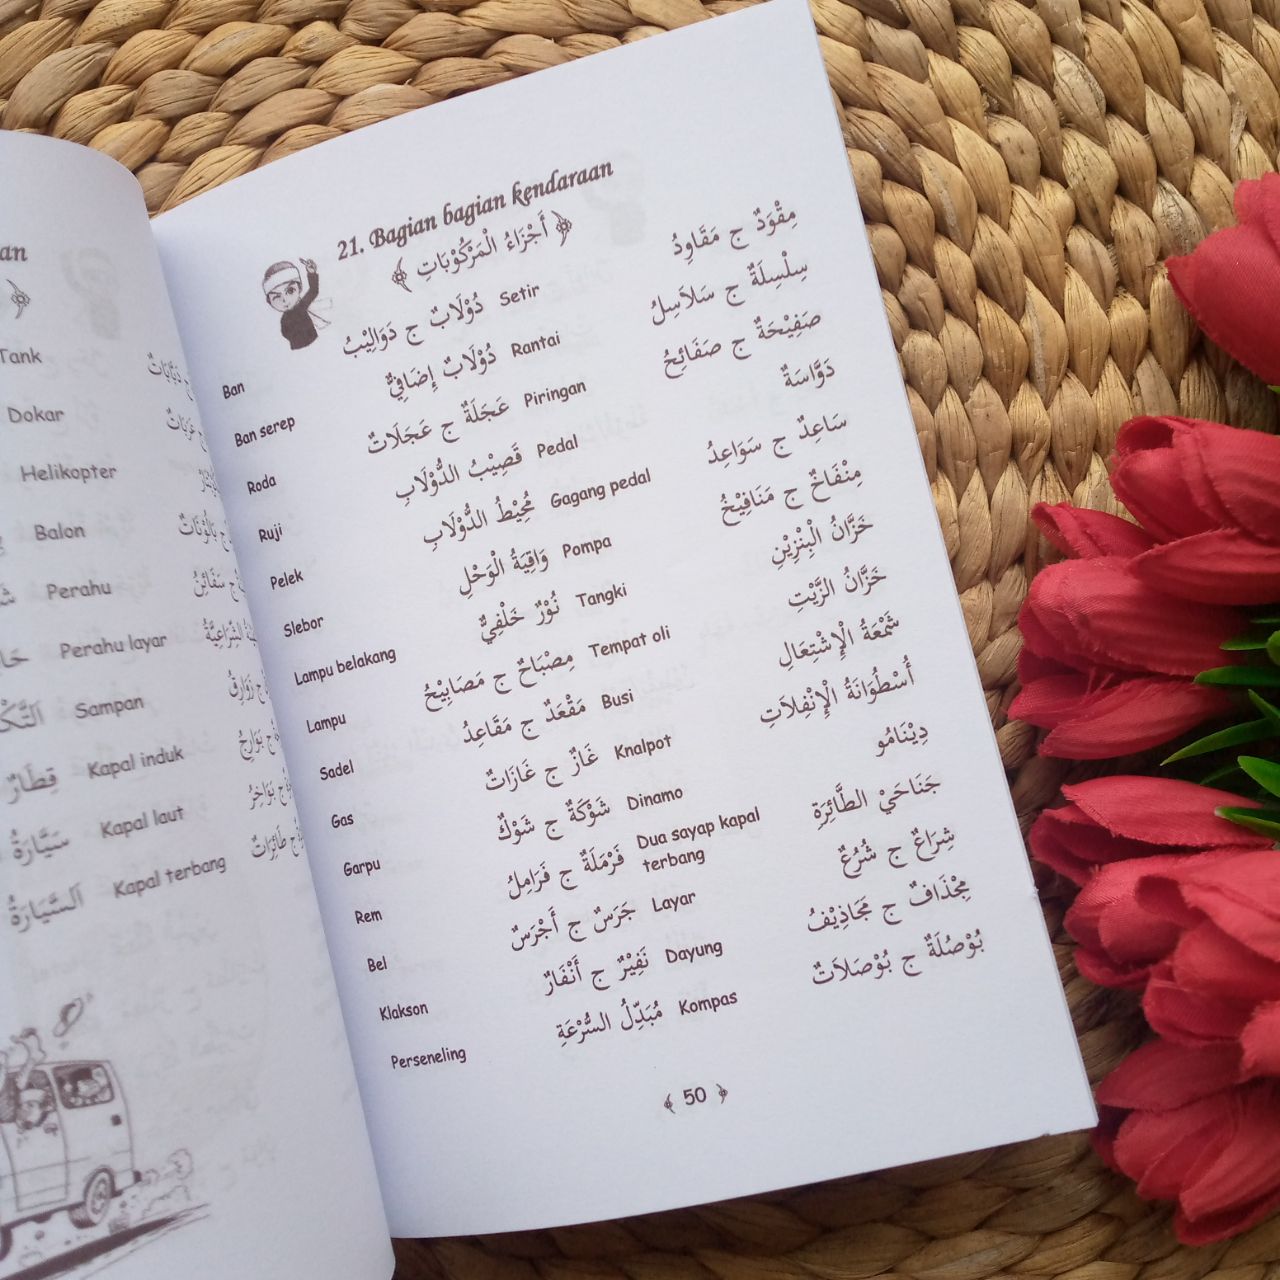 an
Tank
Dokar
Helikopter
Balon
Perahu
Perahu layar
Sampan
Kapal induk قِطَارٌ
Kapal laut سَيَّارَةٌ
Kapal terbang اَلسَّيَارَةُ
21. Bagian bagian kendaraan
أَجْزَاءُ الْمَرْكُوْبَاتِ
Ban دُوْلَابٌ ج دَوَالِيْبُ Setir مِقْوَدٌ ج مَقَاوِدُ
Ban serep دُوْلَابٌ إِضَافِيٌّ Rantai سِلْسِلَةٌ ج سَلَاسِلُ
Roda عَجَلَةٌ ج عَجَلَاتٌ Piringan صَفِيْحَةٌ ج صَفَائِحُ
Ruji قَصِيْبُ الدُّوْلَابِ Pedal دَوَّاسَةٌ
Pelek مُحِيْطُ الدُّوْلَابِ Gagang pedal سَاعِدٌ ج سَوَاعِدُ
Slebor وَاقِيَةُ الْوَحْلِ Pompa مِنْفَاخٌ ج مَنَافِيْخُ
Lampu belakang نُوْرٌ خَلْفِيٌّ Tangki خَزَّانُ الْبِنْزِيْنِ
Lampu مِصْبَاحٌ ج مَصَابِيْحُ Tempat oli خَزَّانُ الزَّيْتِ
Sadel مَقْعَدٌ ج مَقَاعِدُ Busi شَمْعَةُ الْإِشْتِعَالِ
Gas غَازٌ ج غَازَاتٌ Knalpot أُسْطُوَانَةُ الْإِنْفِلَاتِ
Garpu شَوْكَةٌ ج شَوْكٌ Dinamo دِيْنَامُو
Rem فَرْمَلَةٌ ج فَرَامِلُ Dua sayap kapal terbang جَنَاحَيْ الطَّائِرَةِ
Bel جَرَسٌ ج أَجْرَسٌ Layar شِرَاعٌ ج شُرُعٌ
Klakson نَفِيْرٌ ج أَنْفَارٌ Dayung مِجْذَافٌ ج مَجَاذِيْفُ
Perseneling مُبَدِّلُ السُّرْعَةِ Kompas بُوْصُلَةٌ ج بُوْصَلَاتٌ
50